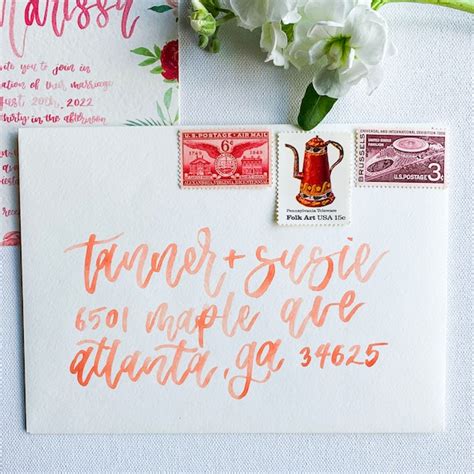 Marissa
you to join in
ation of their marriage
ust 20th, 2022
thirty in the afternoon
U.S. POSTAGE AIR MAIL
6¢
1749
1949
ALEXANDRIA, VIRGINIA, BICENTENNIAL
Pennsylvania Toleware
Folk Art USA 15c
UNIVERSAL AND INTERNATIONAL EXHIBITION 1958
BRUSSELS
UNITED STATES PAVILION
U.S. POSTAGE
3¢
tanner + susie
6501 maple ave
atlanta, ga 34625